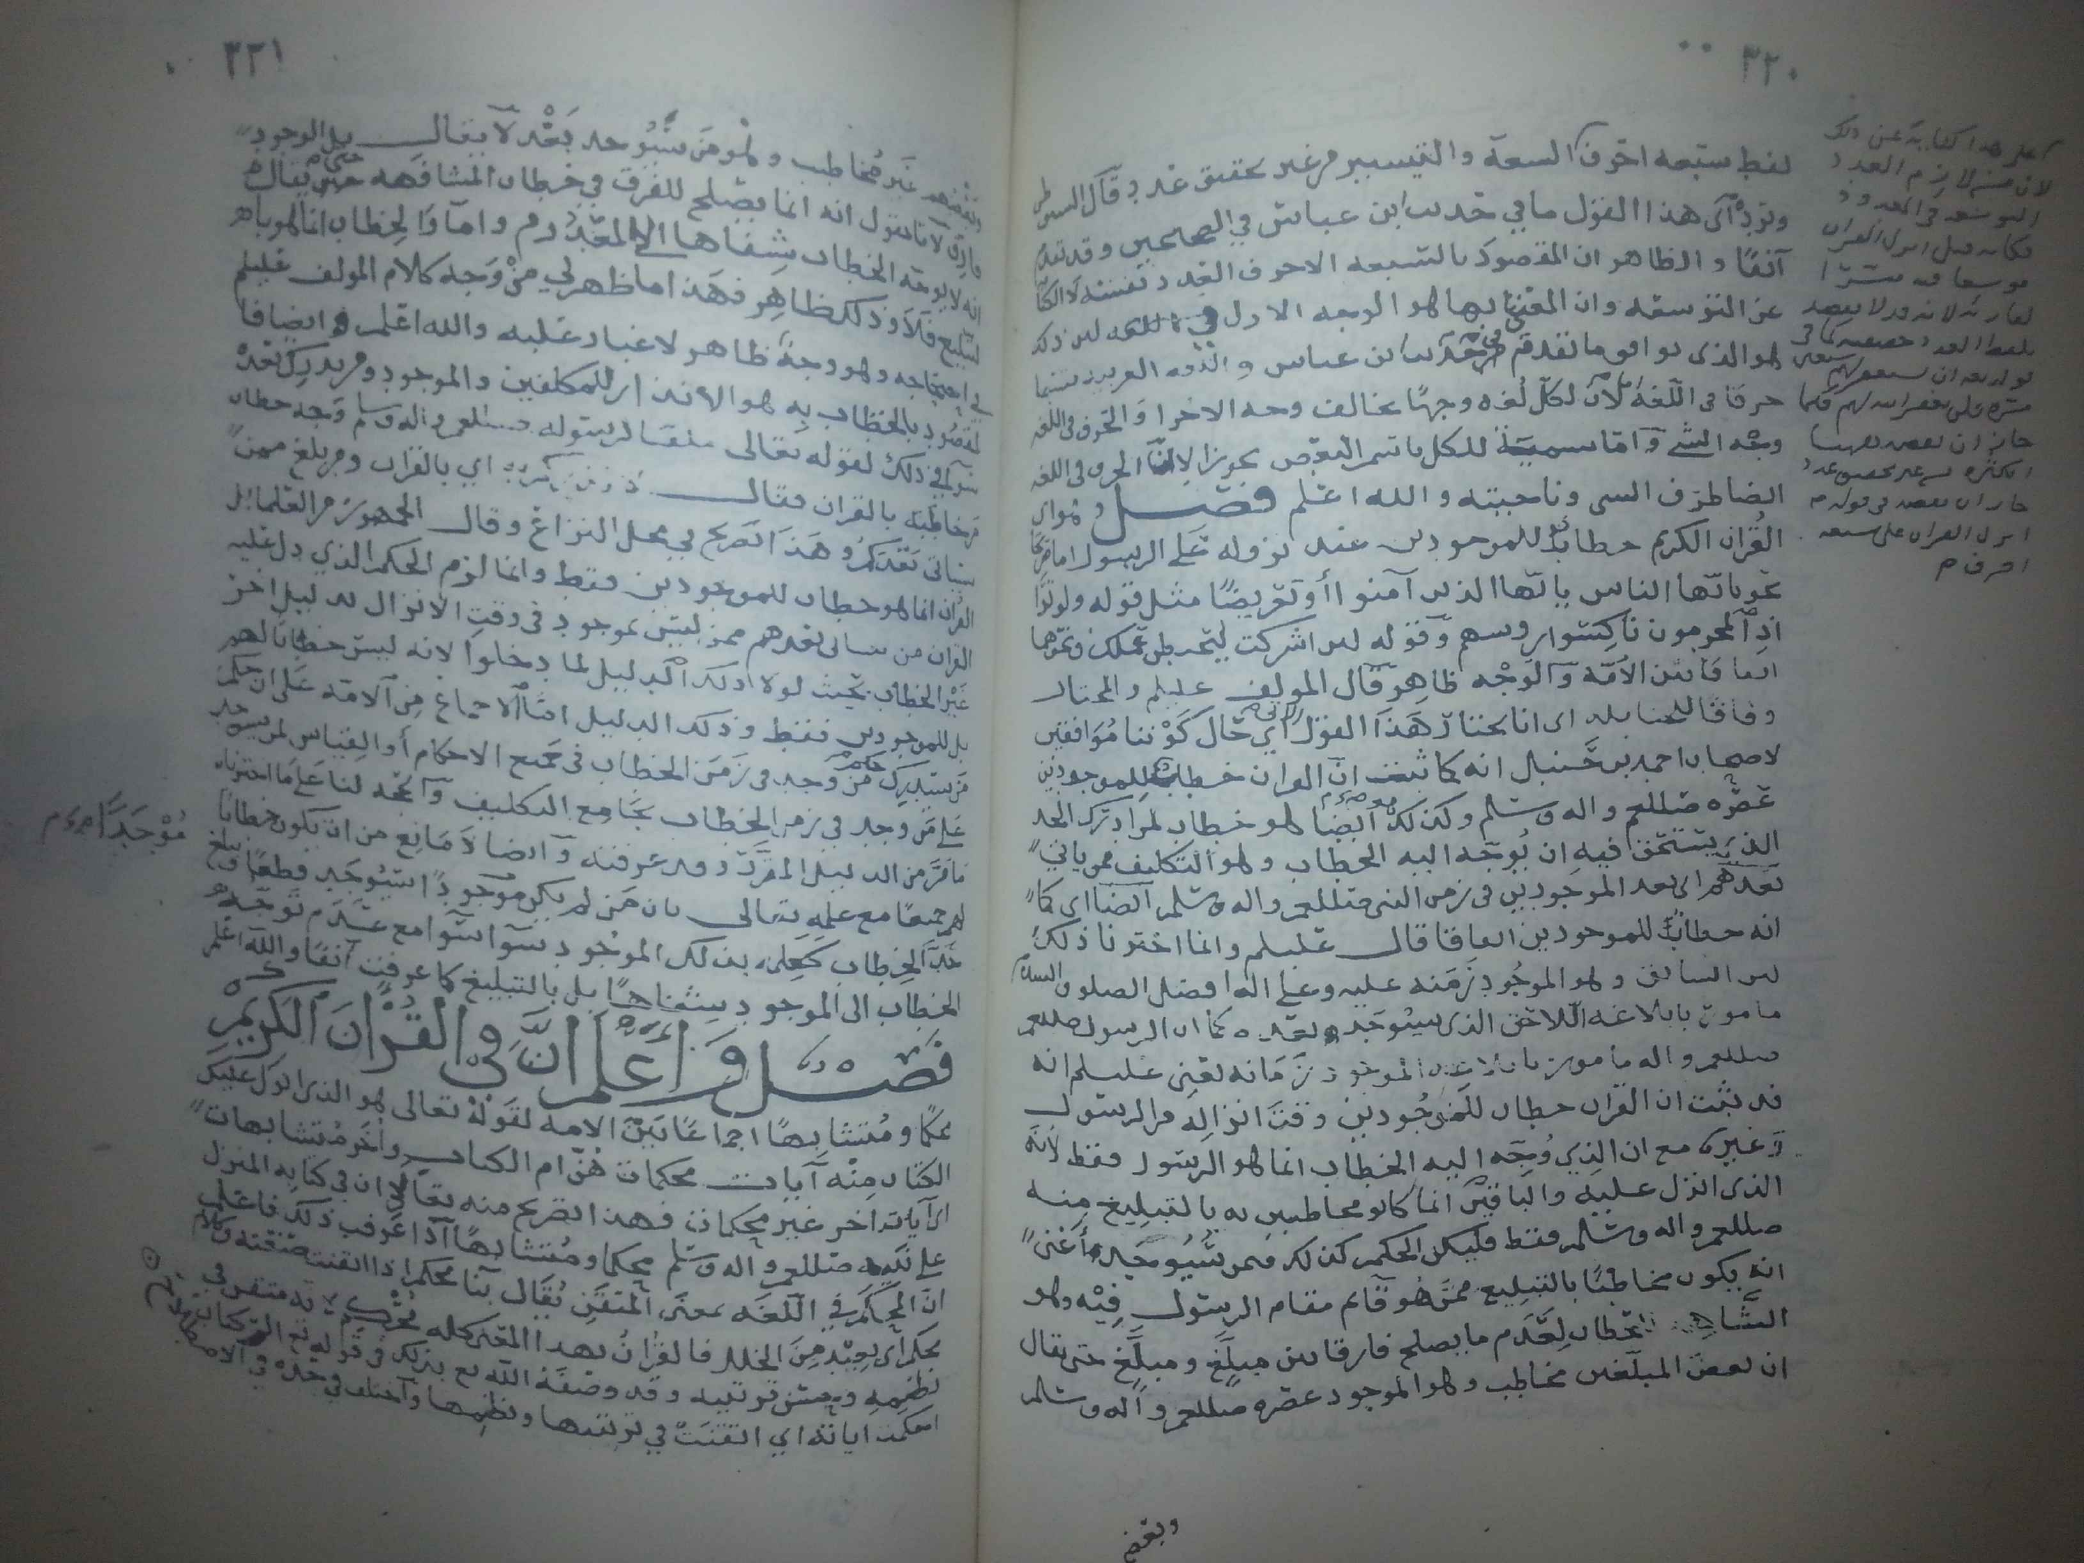 ٣٢٠
لفظ سبعه احرف السعة والتيسير من غير تحقيق عدد وقال السيوطي
ويرد على هذا القول ما في حديث ابن عباس في الصحيحين وقد تقدم
آنفا والظاهر ان المقصود بالسبعه الاحرف العدد نفسه لا الكناية
عن التوسعه وان المعنى بها هو الوجه الاول في اللغه لان ذلك
هو الذي يوافق ما تقدم عن ابن عباس
حرفا في اللغة لان لكل لغه وجها يخالف وجه الاخرا والحرف في اللغه
وجه الشي واما تسمية للكل باسم البعض تجوزا لان الحرف في اللغه
ايضا طرف الشي وناحيته والله اعلم فصل وهو اي
القران الكريم خطاب للموجودين عند نزوله على الرسول اما صريحا
نحو ياتها الناس ياتها الذين آمنوا أو تعريضا مثل قوله ولو ترا
اذ المجرمون ناكسوا روسهم وقوله لين اشركت ليحبطن عملك ونحوهما
اتفاقا بين الأمة والوجه ظاهر قال المولف عليلم والمختار
وفاقا للحنابله اي انا نختار هذا القول اي حال كوننا موافقين
لاصحاب احمد بن حنبل انه كما ثبت ان القران خطاب للموجودين
عصره صللعم واله وسلم وكذلك ايضا هو خطاب لمن ادرك الحد
الذي يستحق فيه ان يوجه اليه الخطاب وهو التكليف ممن ياتي
بعدهم اي بعد الموجودين في زمن النبي صللعم واله وسلم ايضا اي كما
انه خطاب للموجودين اتفاقا قال عليلم وانما اخترنا ذلك
لان السابق وهو الموجود زمنه عليه وعلى اله افضل الصلوه والسلام
مامور بابلاغه اللاحق الذي سيوجد بعده كما ان الرسول صللعم
صللعم واله مامور بابلاغه الموجود زمانه يعني عليلم انه
قد ثبت ان القران خطاب للموجودين وقت انزاله من الرسول
وغيره مع ان الذي وجه اليه الخطاب انما هو الرسول فقط لانه
الذي انزل عليه والباقين انما كانوا مخاطبين به بالتبليغ منه
صللعم واله وسلم فقط فليكن الحكم كذلك فيمن سيوجد أعني
انه يكون مخاطبا بالتبليغ ممن هو قائم مقام الرسول فيه وهو
الخطاب لعدم ما يصلح فارقا بين مبلغ ومبلغ حتى يقال
ان بعض المبلغين مخاطب وهو الموجود عصره صللعم واله وسلم
وبعضهم
لان من لازم العدد
التوسعه في المعدود
فكانه قيل انزل القران
موسعا
لقارئه لانه قد لا يقصد
بلفظ العدد حقيقته كما في
قوله تع ان تستغفر لهم سبعين
مره فلن يغفر الله لهم فكما
جاز ان يقصد بها
الكثره من غير تحقيق عدد
جاز ان يقصد في قوله
انزل القران على سبعه
احرف م
٣٢١
وبعضهم غير مخاطب وهو من سيوجد بعد لا يقال بل الوجود
فارق لانا نقول انه انما يصلح للفرق في خطاب المشافهه حتى يقال
انه لا يوجه الخطاب شفاها الى المعدوم واما والخطاب انما هو با
لتبليغ فلا وذلك ظاهر فهذا ما ظهر لي من وجه كلام المولف عليلم
في احتجاجه وهو وجه ظاهر لا غبار عليه والله اعلم وايضا فا
لمقصود بالخطاب به هو الانذار للمكلفين والموجود ومن يدرك بعده
سوا في ذلك لقوله تعالى ملقنا لرسوله صللعم واله وسلم وجه خطاب
من خاطبه بالقران فقال اي بالقران ومن بلغ ممن
سياتي بعدكم وهذا تصريح في محل النزاع وقال الجمهور من العلماء بل
القران انما هو خطاب للموجودين فقط وانما لزم الحكم الذي دل عليه
القران من سياتي بعدهم ممن ليس بموجود في وقت الانزال بدليل اخر
غير الخطاب بحيث لولا ذلك الدليل لما دخلوا لانه ليس خطابا لهم
بل للموجودين فقط وذلك الدليل اما الاجماع من الامه على ان حكم
من سيدرك حكم من وجد في زمن الخطاب في جميع الاحكام أو القياس لمن سيوجد
على من وجد في زمن الخطاب بجامع التكليف والحجه لنا على ما اخترناه
ما مر من الدليل المقرر وقد عرفته وايضا لا مانع من ان يكون خطابا
لهم جميعا مع علمه تعالى بان من لم يكن موجودا سيوجد قطعا ويبلغ
حد الخطاب كعلمه بذلك الموجود سوا سوا مع عدم توجه
الخطاب الى الموجود شفاها بل بالتبليغ كما عرفت آنفا والله اعلم
موجدا م
فصل واعلم ان في القرآن الكريم
محكما ومتشابها اجماعا بين الامه لقوله تعالى هو الذي انزل عليك
الكتاب منه آيات محكمات هن ام الكتاب وأخر متشابهات
اي آيات أخر غير محكمات فهذا تصريح منه تعالى ان في كتابه المنزل
على نبيه صللعم واله وسلم محكما ومتشابها اذا عرفت ذلك فاعلم
ان المحكم في اللغه بمعنى المتقن يقال بنا محكم اذا اتقنت صنعته وكلام
محكم اي بعيد من الخلل فالقران بهذا المعنى كله محكم لانه متقن في
نظمه وحسن ترتيبه وقد وصفه الله تع بذلك في قوله تع الر كتاب
احكمت اياته اي اتقنت في ترتيبها ونظمها واختلف في حده في الاصطلاح